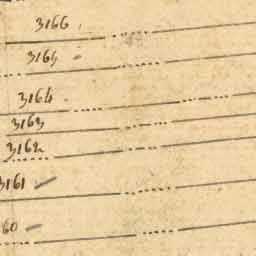 3166
3165
3164
3163
3162
3161
60